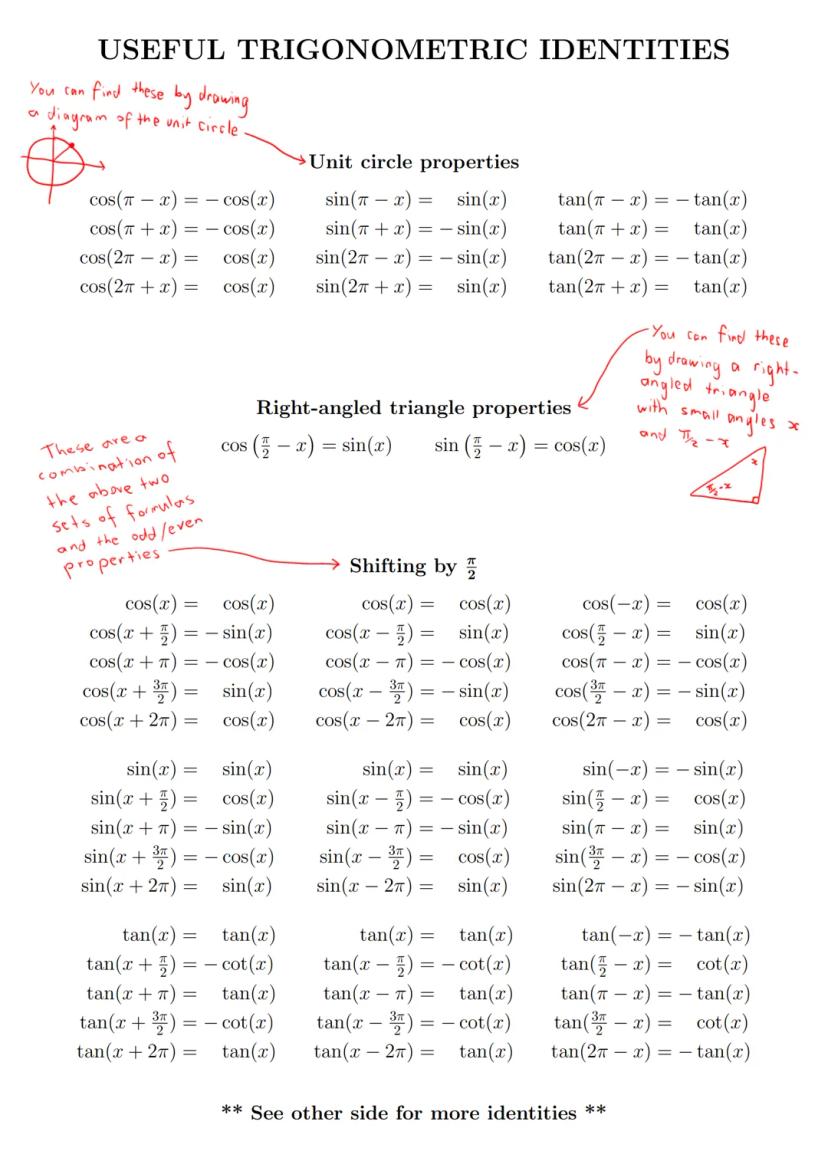 USEFUL TRIGONOMETRIC IDENTITIES
You can find these by drawing
a diagram of the unit circle
Unit circle properties
cos(π − x) = − cos(x) sin(π − x) = sin(x) tan(π − x) = − tan(x)
cos(π + x) = − cos(x) sin(π + x) = − sin(x) tan(π + x) = tan(x)
cos(2π − x) = cos(x) sin(2π − x) = − sin(x) tan(2π − x) = − tan(x)
cos(2π + x) = cos(x) sin(2π + x) = sin(x) tan(2π + x) = tan(x)
You can find these
by drawing a right-
angled triangle
with small angles x
and π/2 - x
x
π/2 - x
Right-angled triangle properties
cos (π/2 − x) = sin(x) sin (π/2 − x) = cos(x)
These are a
combination of
the above two
sets of formulas
and the odd/even
properties
Shifting by π/2
cos(x) = cos(x) cos(x) = cos(x) cos(−x) = cos(x)
cos(x + π/2) = − sin(x) cos(x − π/2) = sin(x) cos(π/2 − x) = sin(x)
cos(x + π) = − cos(x) cos(x − π) = − cos(x) cos(π − x) = − cos(x)
cos(x + 3π/2) = sin(x) cos(x − 3π/2) = − sin(x) cos(3π/2 − x) = − sin(x)
cos(x + 2π) = cos(x) cos(x − 2π) = cos(x) cos(2π − x) = cos(x)
sin(x) = sin(x) sin(x) = sin(x) sin(−x) = − sin(x)
sin(x + π/2) = cos(x) sin(x − π/2) = − cos(x) sin(π/2 − x) = cos(x)
sin(x + π) = − sin(x) sin(x − π) = − sin(x) sin(π − x) = sin(x)
sin(x + 3π/2) = − cos(x) sin(x − 3π/2) = cos(x) sin(3π/2 − x) = − cos(x)
sin(x + 2π) = sin(x) sin(x − 2π) = sin(x) sin(2π − x) = − sin(x)
tan(x) = tan(x) tan(x) = tan(x) tan(−x) = − tan(x)
tan(x + π/2) = − cot(x) tan(x − π/2) = − cot(x) tan(π/2 − x) = cot(x)
tan(x + π) = tan(x) tan(x − π) = tan(x) tan(π − x) = − tan(x)
tan(x + 3π/2) = − cot(x) tan(x − 3π/2) = − cot(x) tan(3π/2 − x) = cot(x)
tan(x + 2π) = tan(x) tan(x − 2π) = tan(x) tan(2π − x) = − tan(x)
** See other side for more identities **